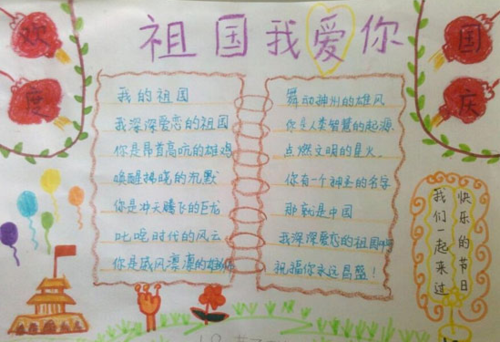 欢度
祖国我爱你
国庆
我的祖国
我深深爱恋的祖国
你是昂首高吭的雄鸡
唤醒拂晓的沉默
你是冲天腾飞的巨龙
叱咤时代的风云
你是威风凛凛的雄狮
舞动神州的雄风
你是人类智慧的起源
点燃文明的星火
你有一个神圣的名字
那就是中国
我深深爱恋的祖国啊
祝福你永远昌盛!
快乐的节日
我们一起来过